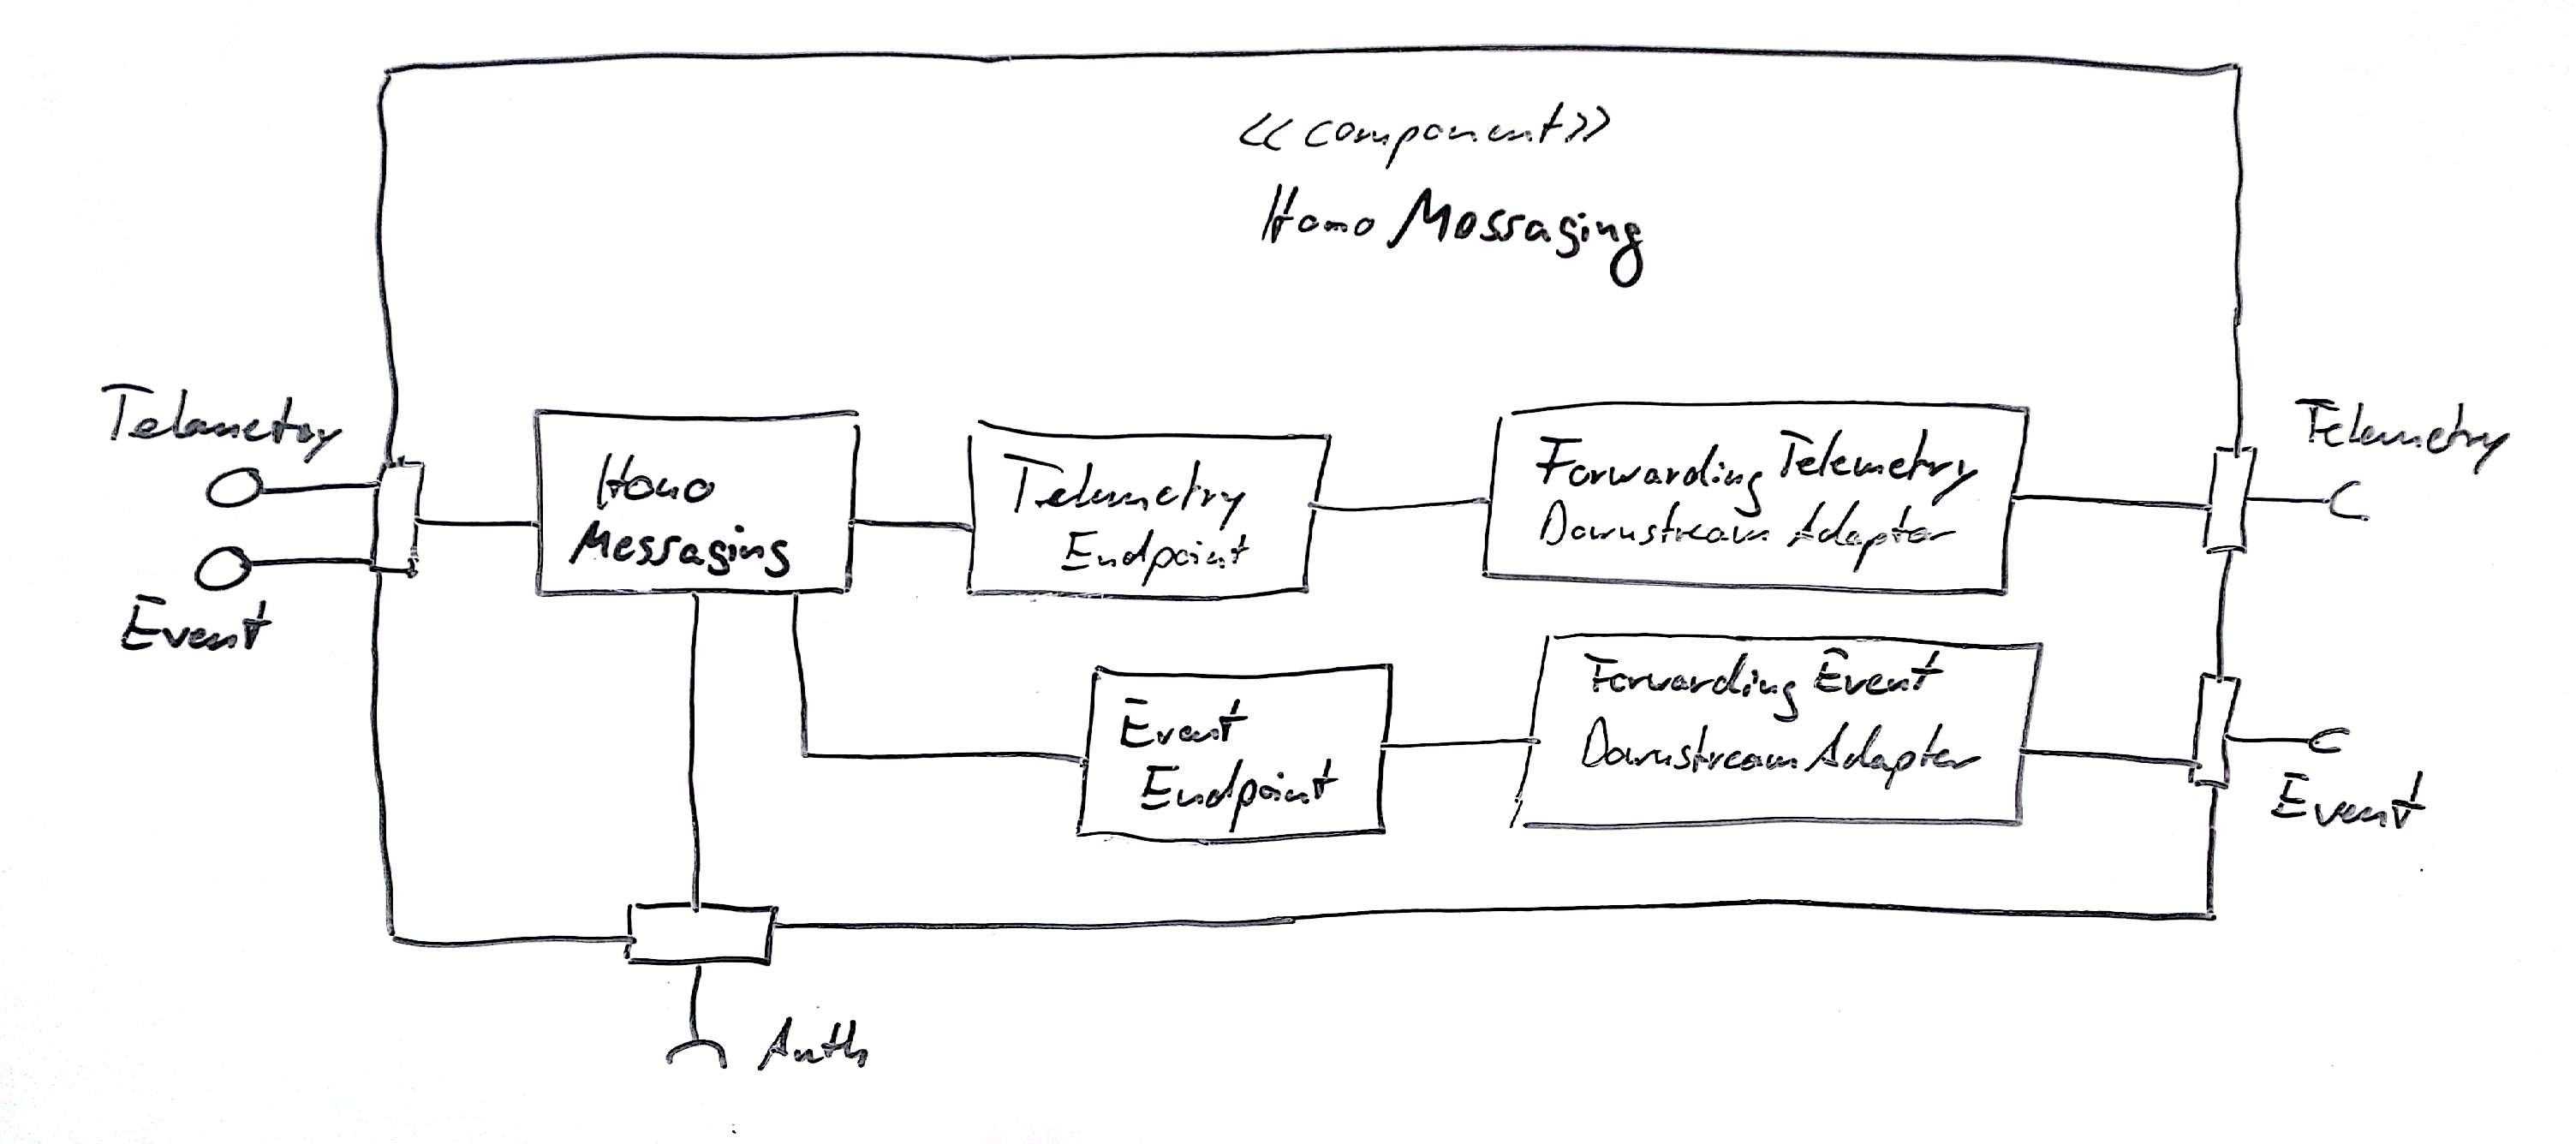 <<component>>
Hono Messaging
Telemetry
Event
Hono
Messaging
Telemetry
Endpoint
Forwarding Telemetry
Downstream Adapter
Telemetry
Event
Endpoint
Forwarding Event
Downstream Adapter
Event
Auth